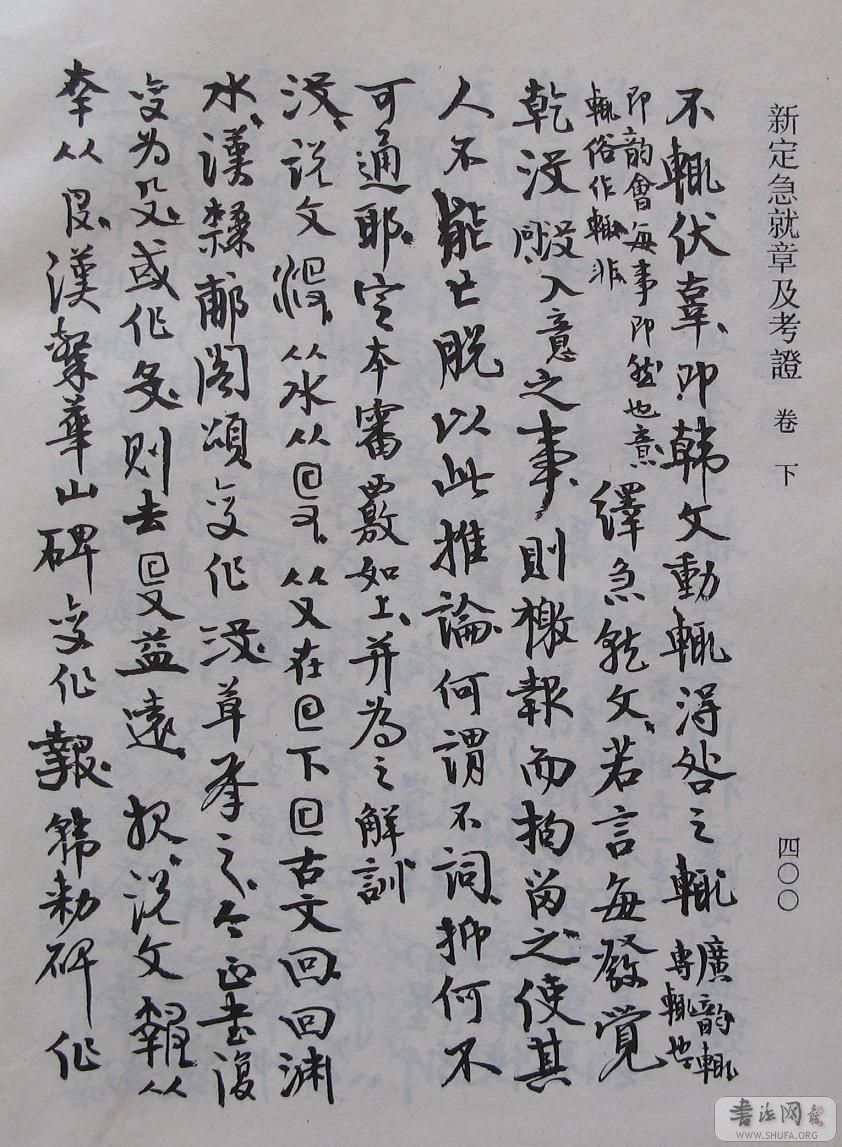 新定急就章及考證 卷下
四〇〇
不輒伏辜、即韓文動輒得咎之輒 廣韵輒專輒也
即韵會每事即然也意 輒俗作輙非 繹急就文、若言每發覺
乾没 没入意 之事、則檄報而拘留之使其
人不能亡脱以此推論何謂不詞、抑何不
可通耶、定本審覈如上、并為之解訓
没、説文 从水从 在 下 古文回、回淵
水、漢 郙閣頌變作没、草承之、今正書復
變为 或作 則去 益遠、报、説文 从
㚔从𠬝、漢 華山碑變作報、韩勑碑作
書法网
WWW.SHUFA.ORG